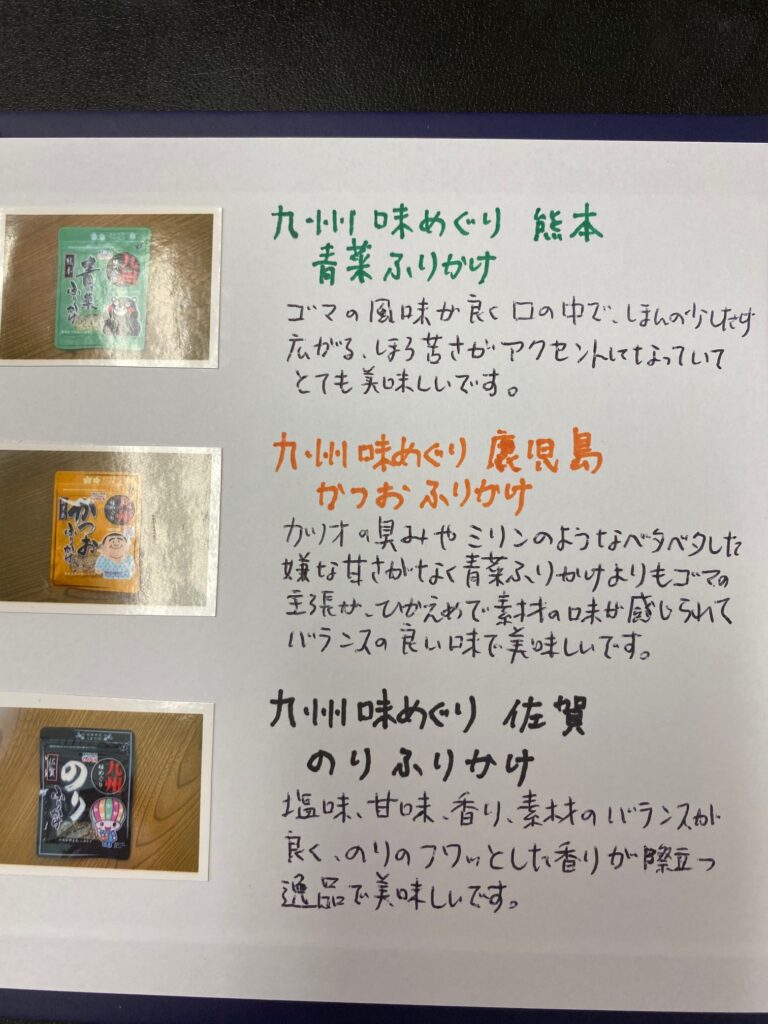 九州味めぐり 熊本
青菜ふりかけ
ゴマの風味が良く口の中で、ほんの少しだけ
広がる、ほろ苦さがアクセントになっていて
とても美味しいです。
九州味めぐり 鹿児島
かつおふりかけ
カツオの臭みやミリンのようなベタベタした
嫌な甘さがなく青菜ふりかけよりもゴマの
主張が、ひかえめで素材の味が感じられて
バランスの良い味で美味しいです。
九州味めぐり 佐賀
のりふりかけ
塩味、甘味、香り、素材のバランスが
良く、のりのフワッとした香りが際立つ
逸品で美味しいです。
青菜
ふりかけ
九州
かつお
ふりかけ
九州
味めぐり
佐賀
のり
ふりかけ